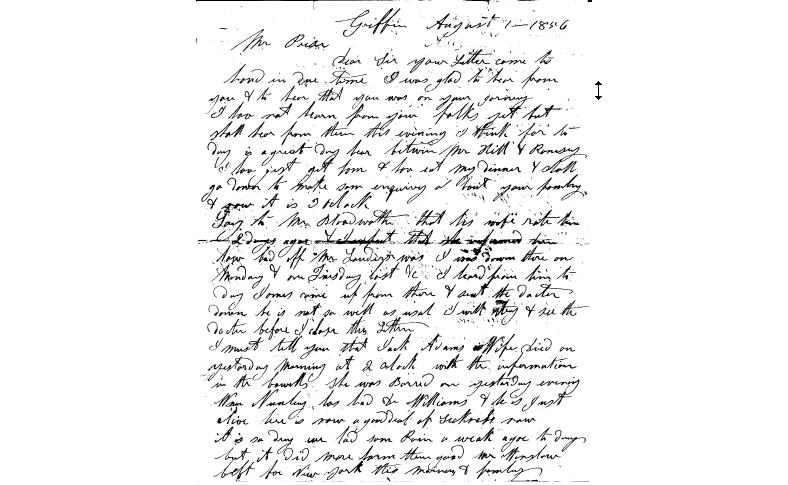 Griffin August 1 - 1856
Mr Prior
Dear Sir your Letter come to
hand in due time I was glad to hear from
you & to hear that you was on your jorney
I have not hearn from your folks yet but
shall hear from them this evening I think for to
day is a great day hear betwixt Mr Hill & Ramsey
I have just got hom & have eat my dinner & shall
go down to make som enquiring a bout your family
& now it is 3 oclock
Say to Mr Bloodwoth that his wife rote him
2 days agoe & I expect that she informed him
how bad off Mr Landers was I was down there on
Monday & on Tuesday last &c I heard from him to
day Jones came up from there & sent the docter
down he is not so well as usal I will stay & see the
docter before I close this Letter
I must tell you that Jack Adams Wife Died on
yesterday Morning at 2 clock with the information
in the bowells she was Burred on yesterday evening
Wm Nunley has had Dr Williams & he is Just
alive here is now a gooddeal of Sickness now
it is so dry we had som Rain a weak agoe to day
but it did more harm then good Mr Winslow
left for New York this morning & family